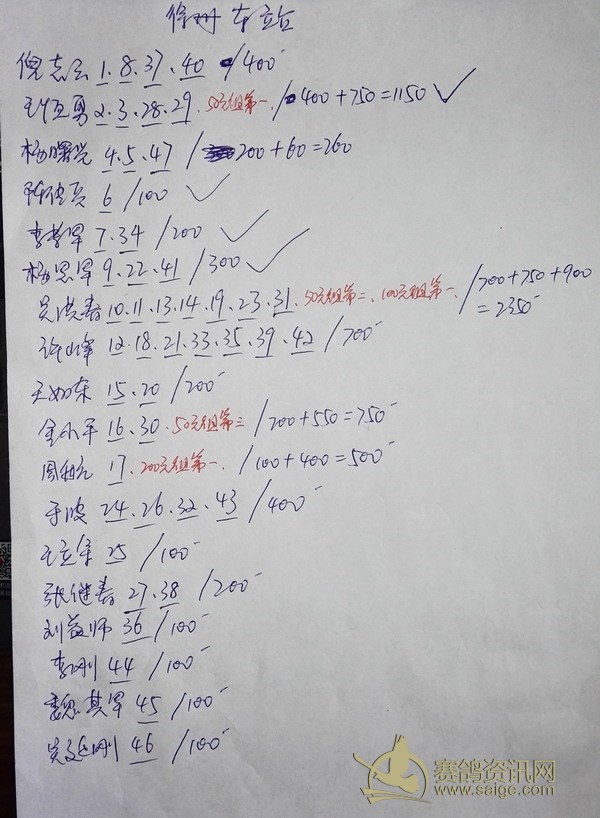 徐州车站
倪志云 1.8.37.40 /400
王恒勇 2.3.28.29.50元组第一./400+750=1150 ✓
杨曙光 4.5.47 /200+60=260
陈 6 /100 ✓
李孝军 7.34 /200 ✓
杨思军 9.22.41 /300 ✓
吴洪春 10.11.13.14.19.23.31.50元组第二、100元组第一./700+750+900
=2350
许山峰 12.18.21.33.35.39.42 /700
王如东 15.20 /200
金小平 16.30.50元组第三 /200+550=750
周 17.200元组第一./100+400=500
于波 24.26.32.43 /400
王立军 25 /100
张继春 27.38 /200
刘益师 36 /100
李刚 44 /100
魏其军 45 /100
吴延刚 46 /100
赛鸽资讯网
www.saige.com